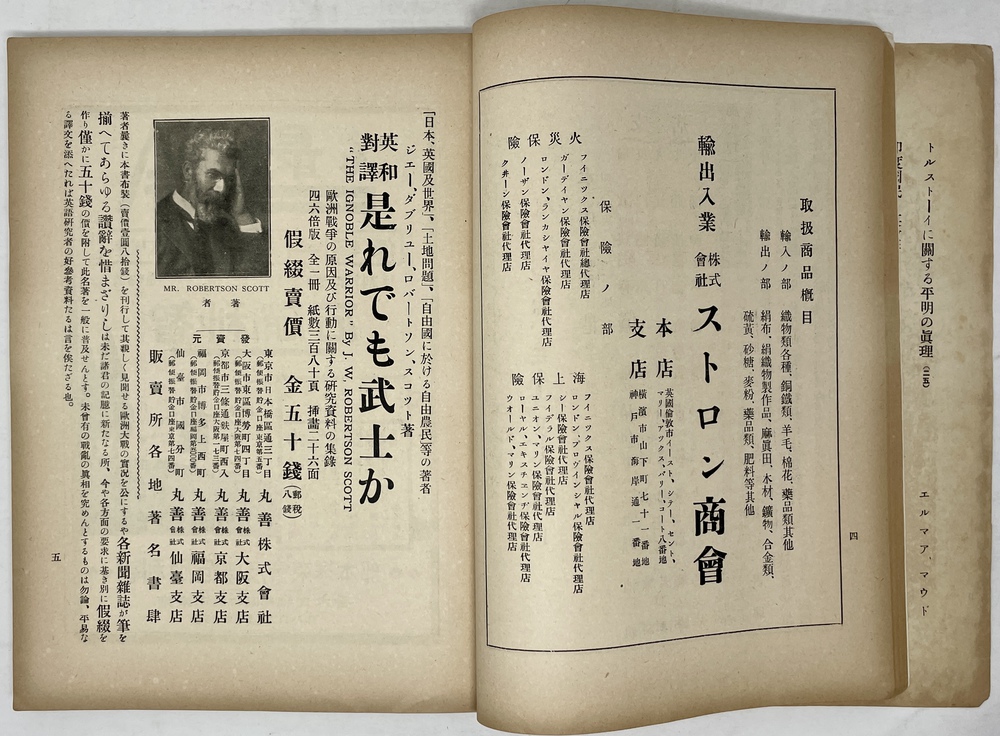 トルストーイに關する平明の眞理 (二五)
エルマア、マウド
四
取扱商品槪目
輸入ノ部 織物類各種、銅鐵類、羊毛、棉花、藥品類其他
輸出ノ部 絹布、絹織物製作品、麻眞田、木材、鑛物、合金類、
硫黃、砂糖、麥粉、藥品類、肥料等其他
輸出入業 株式會社 ストロン商會
本店 英國倫敦市イースト、シヤープ、セント、
マリー、アックス、バリー、コート八番地
支店 橫濱市山下町七十一番地
神戸市海岸通一番地
保險ノ部
火災保險
フイニックス保險會社總代理店
ガーデイヤン保險會社代理店
ロンドン、ランカシヤイヤ保險會社代理店
ノーザン保險會社代理店
クヰーン保險會社代理店
海上保險
フイニックス保險會社代理店
ロンドン、プロヴインシヤル保險會社代理店
シー保險會社代理店
フイデラル保險會社代理店
ユニオン、マリン保險會社代理店
ローヤル、エキスチエンヂ保險會社代理店
ウオールド、マリン保險會社代理店
「日本、英國及世界」、「土地問題」、「自由國に於ける自由農民」等の著者
ジエー、ダブリユー、ロバートソン、スコット著
英和對譯 是れでも武士か
"THE IGNOBLE WARRIOR" By J. W. ROBERTSON SCOTT
歐洲戰爭の原因及び行動に關する研究資料の集錄
四六倍版 全一册 紙數三百八十頁 挿畫二十六面
假綴賣價 金五十錢 (郵稅八錢)
MR. ROBERTSON SCOTT
著者
發賣元
東京市日本橋區通三丁目 (郵便振替貯金口座東京第五番) 丸善株式會社
大阪市東區博勞町四丁目 (郵便振替貯金口座大阪第七四番) 丸善株式會社大阪支店
京都市三條通麩屋町西入 (郵便振替貯金口座大阪第一七三番) 丸善株式會社京都支店
福岡市博多上西町 (郵便振替貯金口座福岡第五〇〇〇番) 丸善株式會社福岡支店
仙臺市國分町 (郵便振替貯金口座東京第七四番) 丸善株式會社仙臺支店
販賣所各地著名書肆
著者曩きに本書布裝(賣價壹圓八拾錢)を刊行して其親しく見聞せる歐洲大戰の實況を公にするや各新聞雜誌が筆を
揃へてあらゆる讚辭を惜まざりしは未だ諸君の記臆に新たなる所、今や各方面の要求に基き別に假綴を
作り僅かに五十錢の價を附して此名著を一般に普及せんとす。未曾有の戰亂の眞相を究めんとするものは勿論、平易な
る譯文を添へたれば英語研究者の好參考資料たるは言を俟たざる也。
五